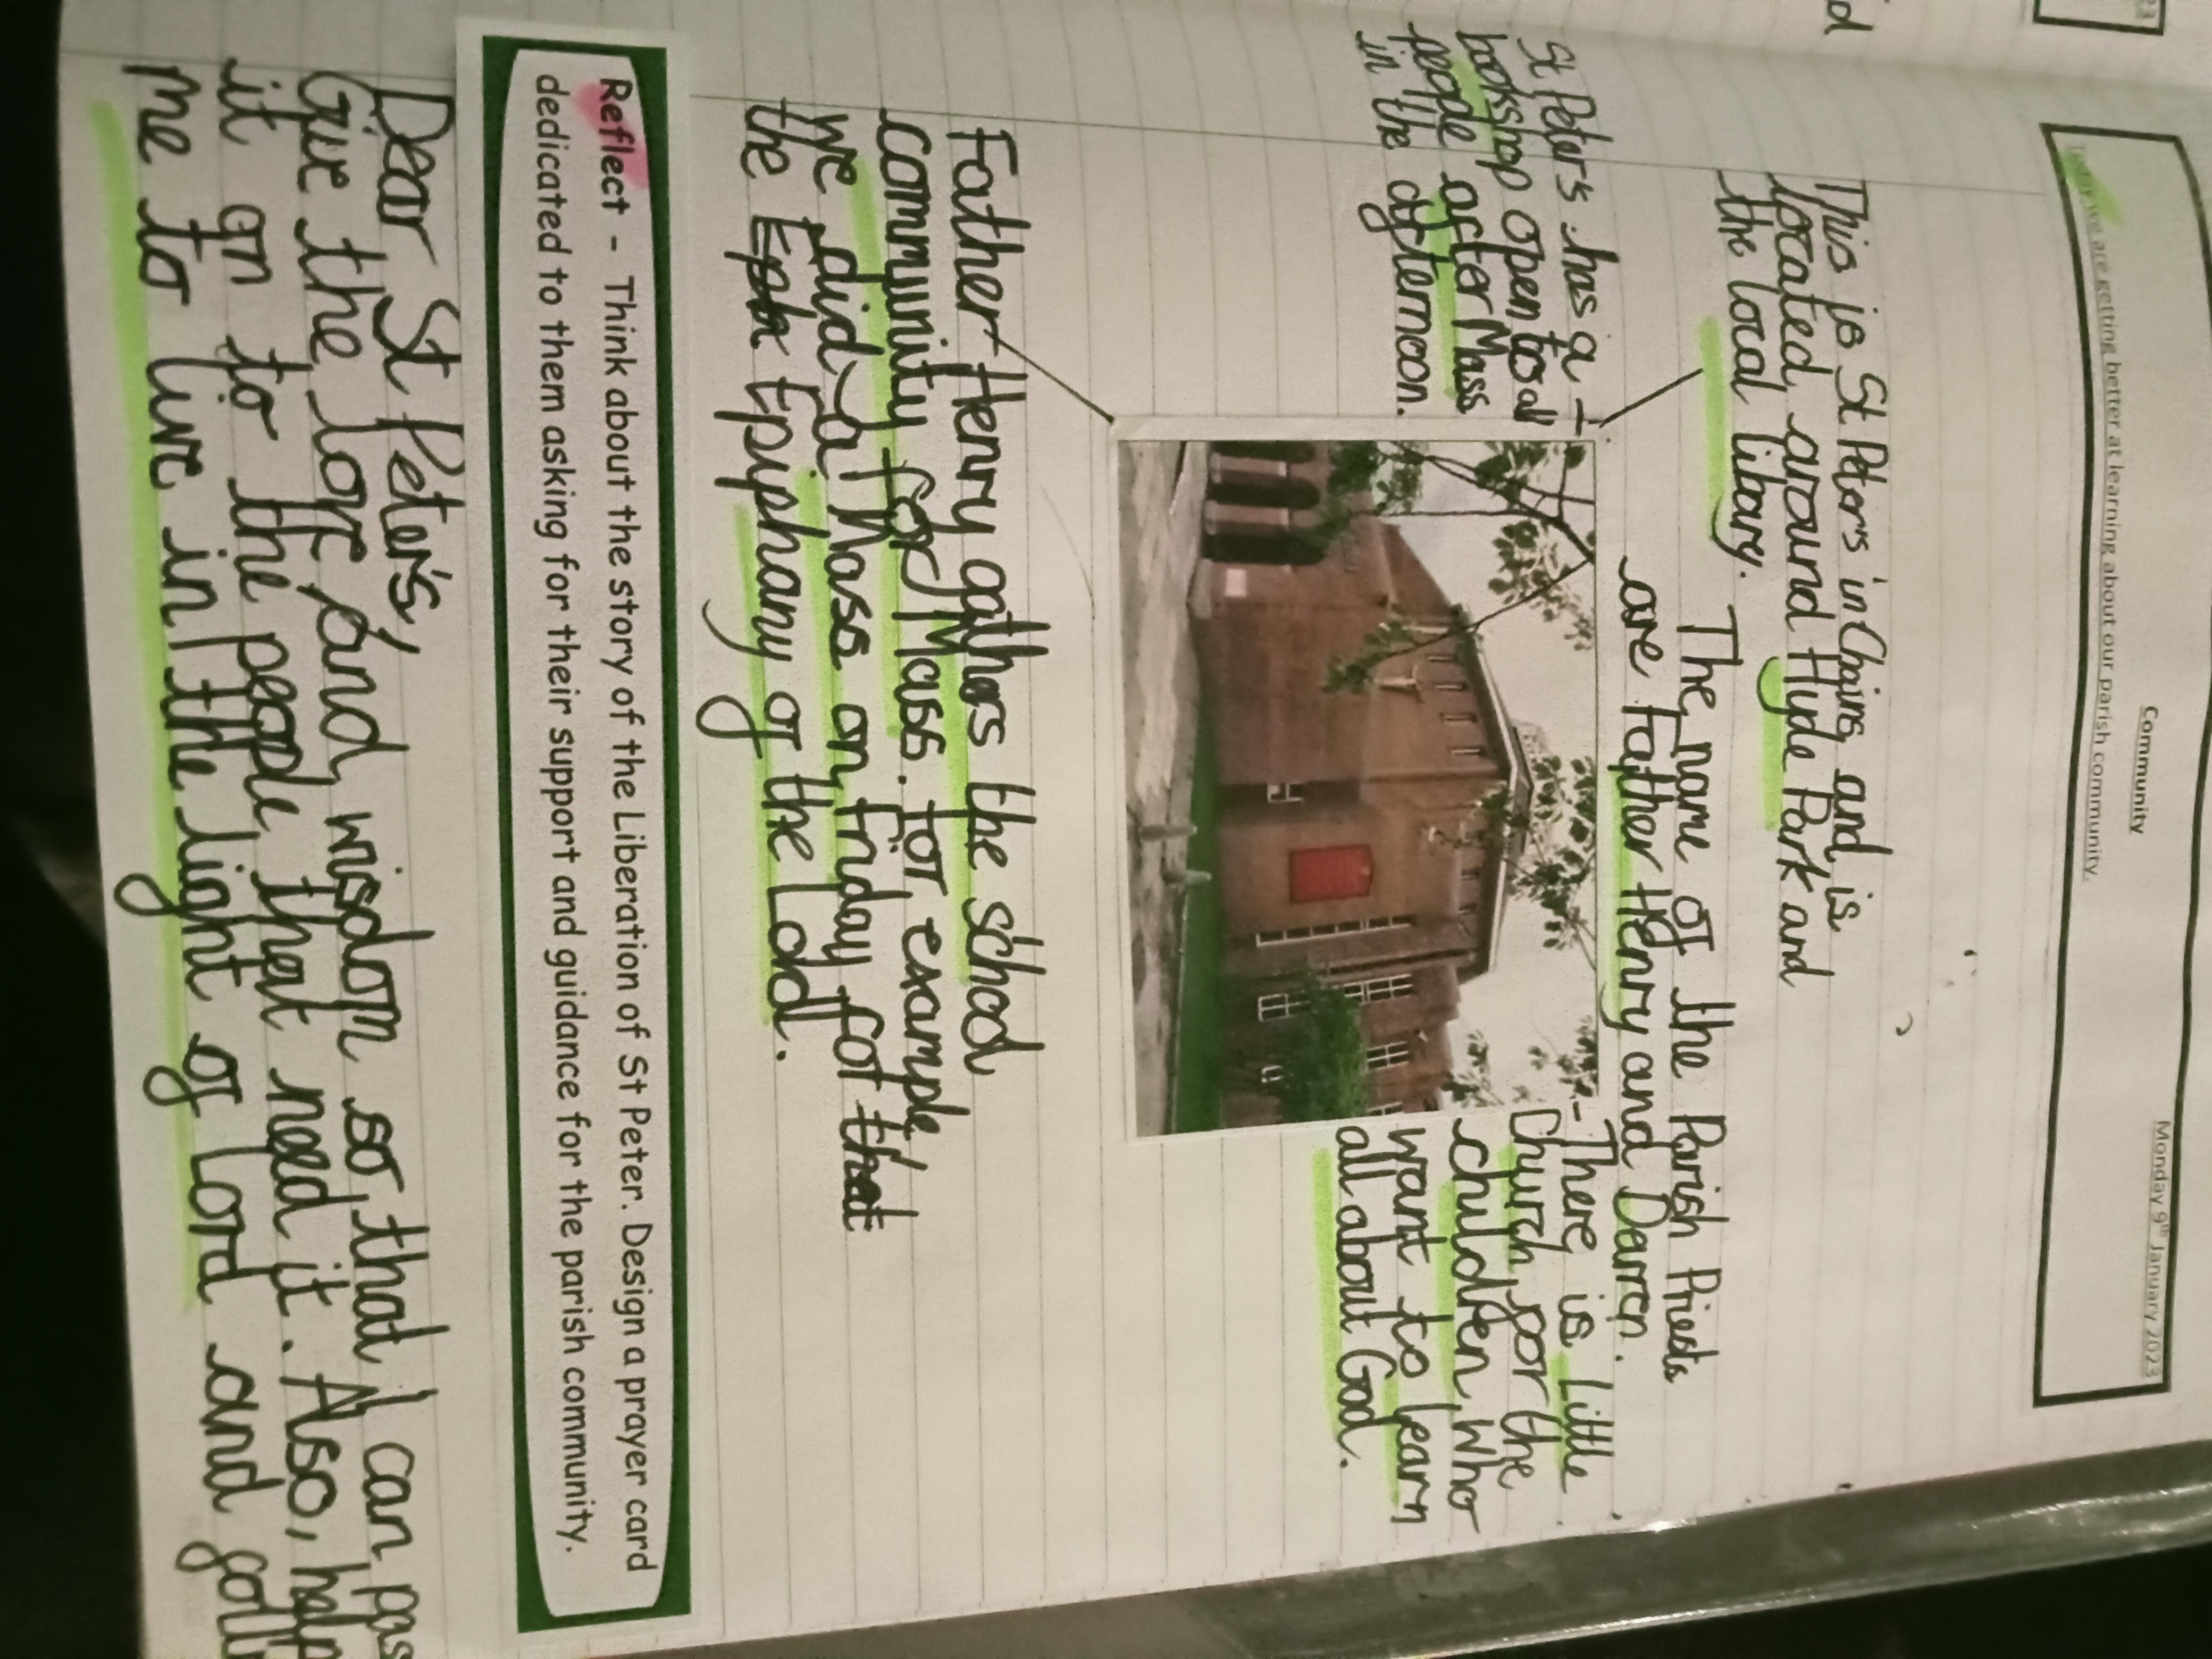 Monday 9th January 2023
Community
Today we are getting better at learning about our parish community.
This is St Peter's in Chains and is
located around Hyde Park and
the local libary.
The name of the Parish Priests
are Father Henry and Darren.
St Peter's has a -
bookshop open to all
people after Mass
in the afternoon.
- There is Little
Church for the
children who
want to learn
all about God.
Father Henry gathers the school
community for Mass. For example
we did a Mass on Friday for that
the Epiphany of the Lord.
Reflect - Think about the story of the Liberation of St Peter. Design a prayer card
dedicated to them asking for their support and guidance for the parish community.
Dear St Peter's,
Give the love and wisdom so that I can pas
it on to the people that need it. Also, help
me to live in the light of Lord and